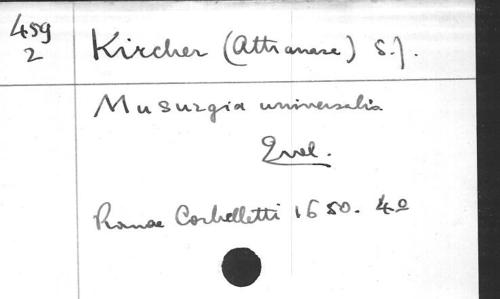 459
2
Kircher (Athanase) S.J.
Musurgia universalis
2 vol.
Romae Corbelletti 1650. 4º